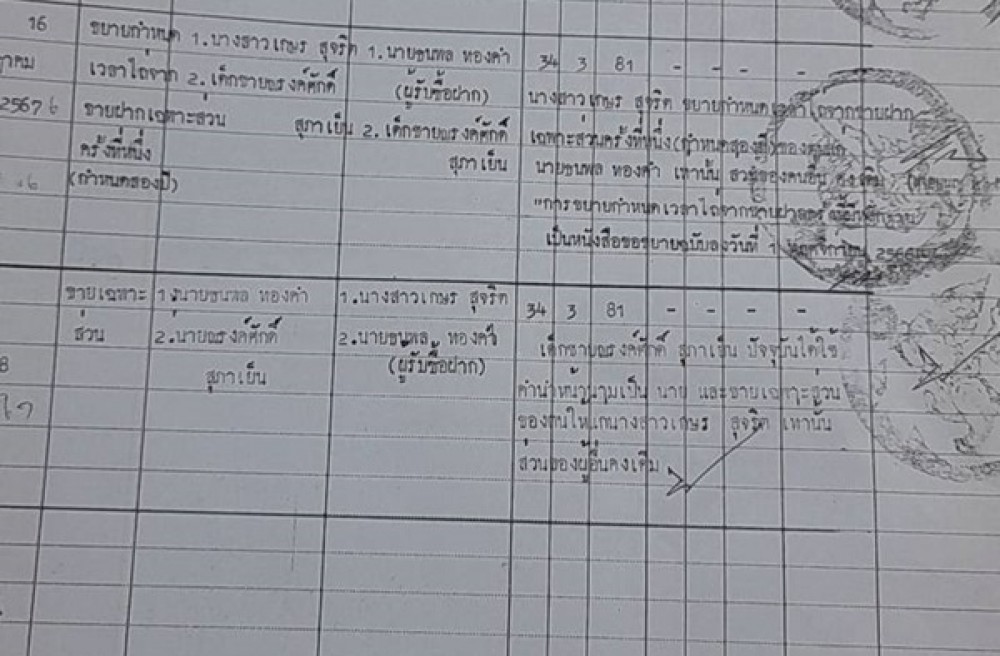 16 ขยายกำหนด 1.นางสาวเกษร สุจริต 1.นายชนพล ทองคำ 34 3 81 - - - -
เวลาไถ่จาก 2.เด็กชายณรงค์ศักดิ์ (ผู้รับซื้อฝาก) นางสาวเกษร สุจริต ขยายกำหนดเวลาไถ่จากขายฝาก
2567 ขายฝากเฉพาะส่วน สุภาเย็น 2.เด็กชายณรงค์ศักดิ์ เฉพาะส่วนครั้งที่หนึ่ง(กำหนดสองปี)
ครั้งที่หนึ่ง สุภาเย็น นายชนพล ทองคำ เท่านั้น ส่วนของคนอื่น คงเดิม
(กำหนดสองปี) "การขยายกำหนดเวลาไถ่จากขายฝาก
เป็นหนังสือขอขยายฉบับลงวันที่ 1 พฤศจิกายน 2566
ขายเฉพาะ 1.นายชนพล ทองคำ 1.นางสาวเกษร สุจริต 34 3 81 - - - -
ส่วน 2.นายณรงค์ศักดิ์ 2.นายชนพล ทองคำ เด็กชายณรงค์ศักดิ์ สุภาเย็น ปัจจุบันได้ใช้
สุภาเย็น (ผู้รับซื้อฝาก) คำนำหน้านามเป็น นาย และขายเฉพาะส่วน
ของตนให้แก่นางสาวเกษร สุจริต เท่านั้น
ส่วนของผู้อื่นคงเดิม